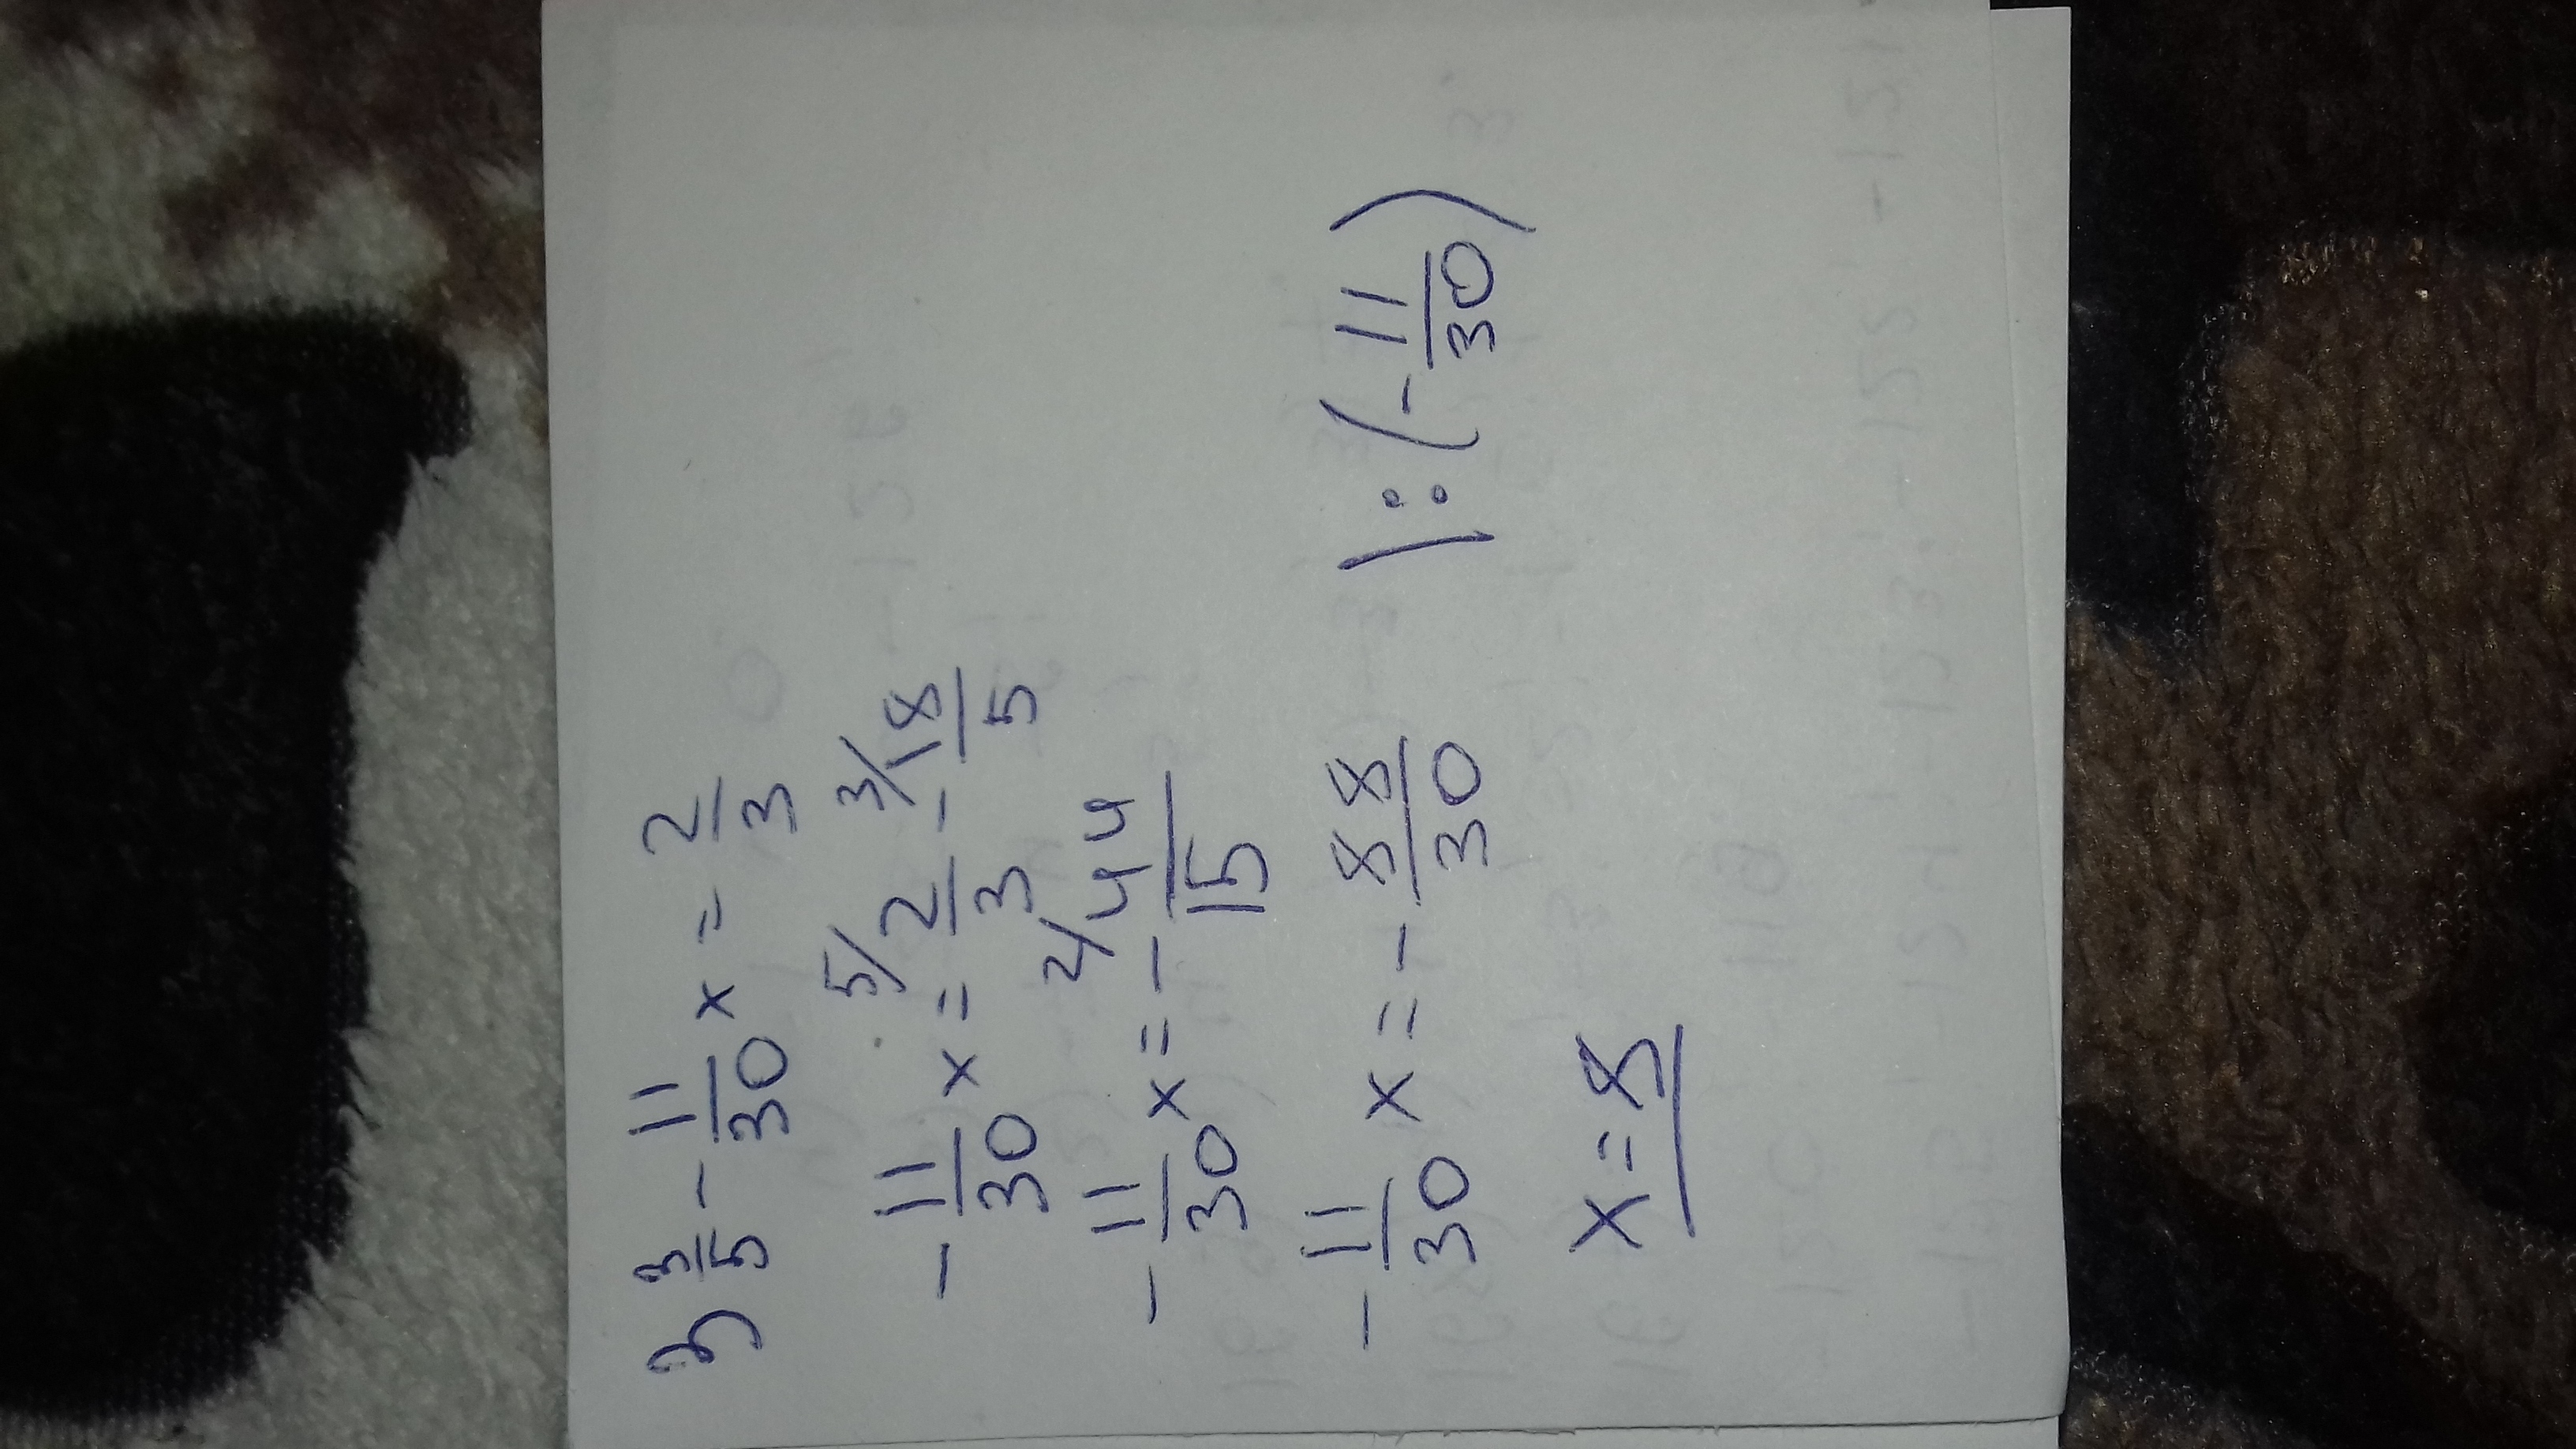 3 3/5 - 11/30 x = 2/3
- 11/30 x = 5/ 2/3 - 3/ 18/5
- 11/30 x = - 2/ 44/15
- 11/30 x = - 88/30 |:(- 11/30)
x = 8